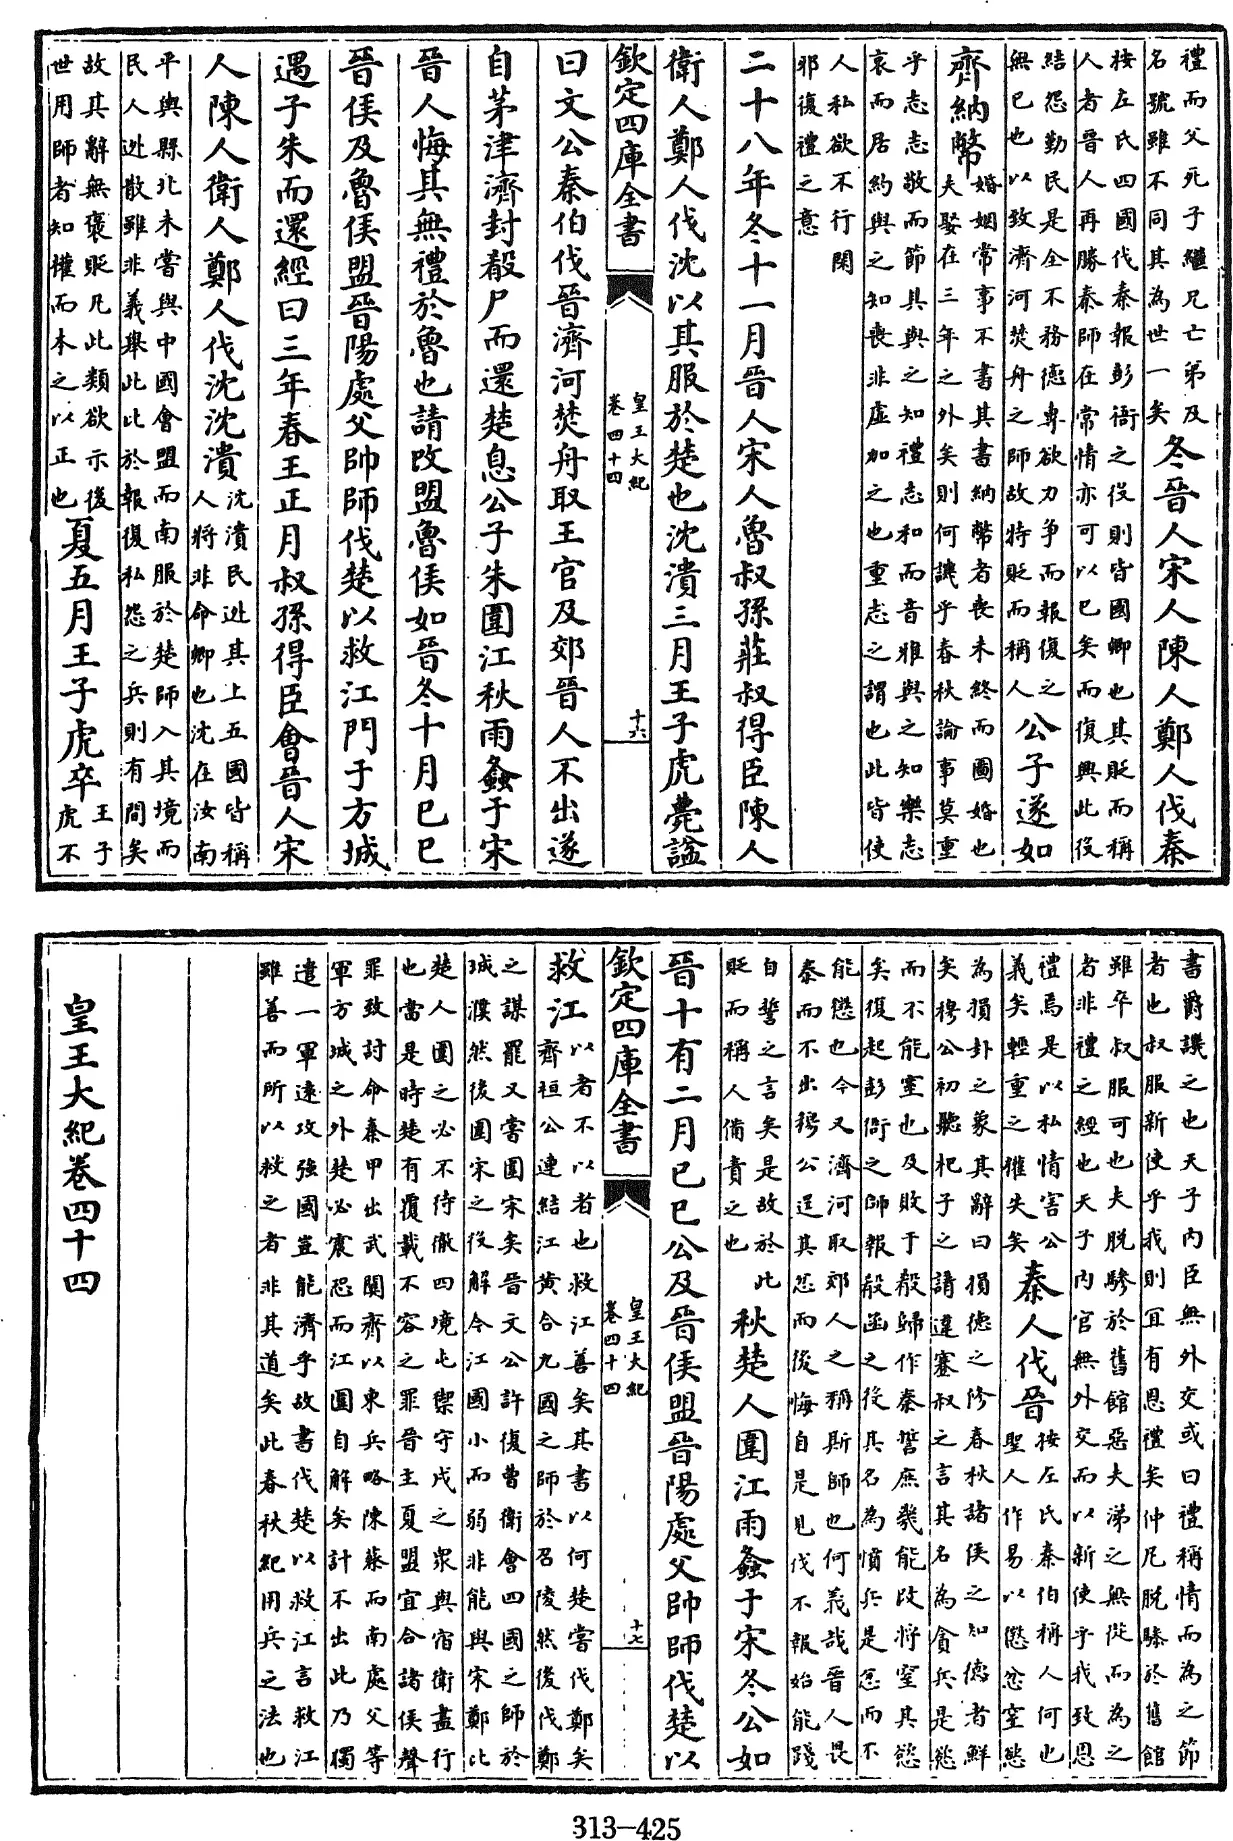 禮而父死子繼兄亡弟及
名號雖不同其為世一矣
冬晉人宋人陳人鄭人伐秦
按左氏四國伐秦報彭衙之役則皆國卿也其貶而稱
人者晉人再勝秦師在常情亦可以已矣而復興此役
結怨勤民是全不務德專欲力争而報復之
無已也以致濟河焚舟之師故特貶而稱人
公子遂如
齊納幣
婚姻常事不書其書納幣者喪未終而圖婚也
夫娶在三年之外矣則何譏乎春秋論事莫重
乎志志敬而節具與之知禮志和而音雅與之知樂志
哀而居約與之知喪非虛加之也重志之謂也此皆使
人私欲不行閑
邪復禮之意
二十八年冬十一月晉人宋人魯叔孫莊叔得臣陳人
衛人鄭人伐沈以其服於楚也沈潰三月王子虎薨諡
欽定四庫全書
皇王大紀
卷四十四
十六
曰文公秦伯伐晉濟河焚舟取王官及郊晉人不出遂
自茅津濟封殽尸而還楚息公子朱圍江秋雨螽于宋
晉人悔其無禮於魯也請改盟魯侯如晉冬十月已已
晉侯及魯侯盟晉陽處父帥師伐楚以救江門于方城
遇子朱而還經曰三年春王正月叔孫得臣會晉人宋
人陳人衛人鄭人伐沈沈潰
沈潰民逃其上五國皆稱
人將非命卿也沈在汝南
平輿縣北未嘗與中國會盟而南服於楚師入其境而
民人逃散雖非義舉此比於報復私怨之兵則有間矣
故其辭無褒貶凡此類欲示後
世用師者知權而本之以正也
夏五月王子虎卒
王子
虎不
書爵譏之也天子內臣無外交或曰禮稱情而為之節
者也叔服新使乎我則宜有恩禮矣仲尼脱驂於舊館
雖卒叔服可也夫脱驂於舊館惡夫涕之無從而為之
者非禮之經也天子內官無外交而以新使乎我致恩
禮焉是以私情害公
義矣輕重之權失矣
秦人伐晉
按左氏秦伯稱人何也
聖人作易以懲忿窒慾
為損卦之象其辭曰損德之修春秋諸侯之知德者鮮
矣穆公初聽杞子之請違蹇叔之言其名為貪兵是慾
而不能窒也及敗于殽歸作秦誓庶幾能改將窒其慾
矣復起彭衙之師報殽函之役其名為憤兵是忿而不
能懲也今又濟河取郊人之稱斯師也何義哉晉人畏
秦而不出穆公逞其忿而後悔自是見伐不報始能踐
自誓之言矣是故於此
貶而稱人備責之也
秋楚人圍江雨螽于宋冬公如
晉十有二月已已公及晉侯盟晉陽處父帥師伐楚以
欽定四庫全書
皇王大紀
卷四十四
十七
救江
以者不以者也救江善矣其書以何楚嘗伐鄭矣
齊桓公連結江黄合九國之師於召陵然後伐鄭
之謀罷又嘗圍宋矣晉文公許復曹衛會四國之師於
城濮然後圍宋之役解今江國小而弱非能與宋鄭比
楚人圍之必不待徹四境屯禦守戍之衆與宿衛盡行
也當是時楚有覆載不容之罪晉主夏盟宜合諸侯聲
罪致討命秦甲出武關齊以東兵略陳蔡而南處父等
軍方城之外楚必震恐而江圍自解矣計不出此乃獨
遣一軍遠攻強國豈能濟乎故書伐楚以救江言救江
雖善而所以救之者非其道矣此春秋紀用兵之法也
皇王大紀卷四十四
313-425